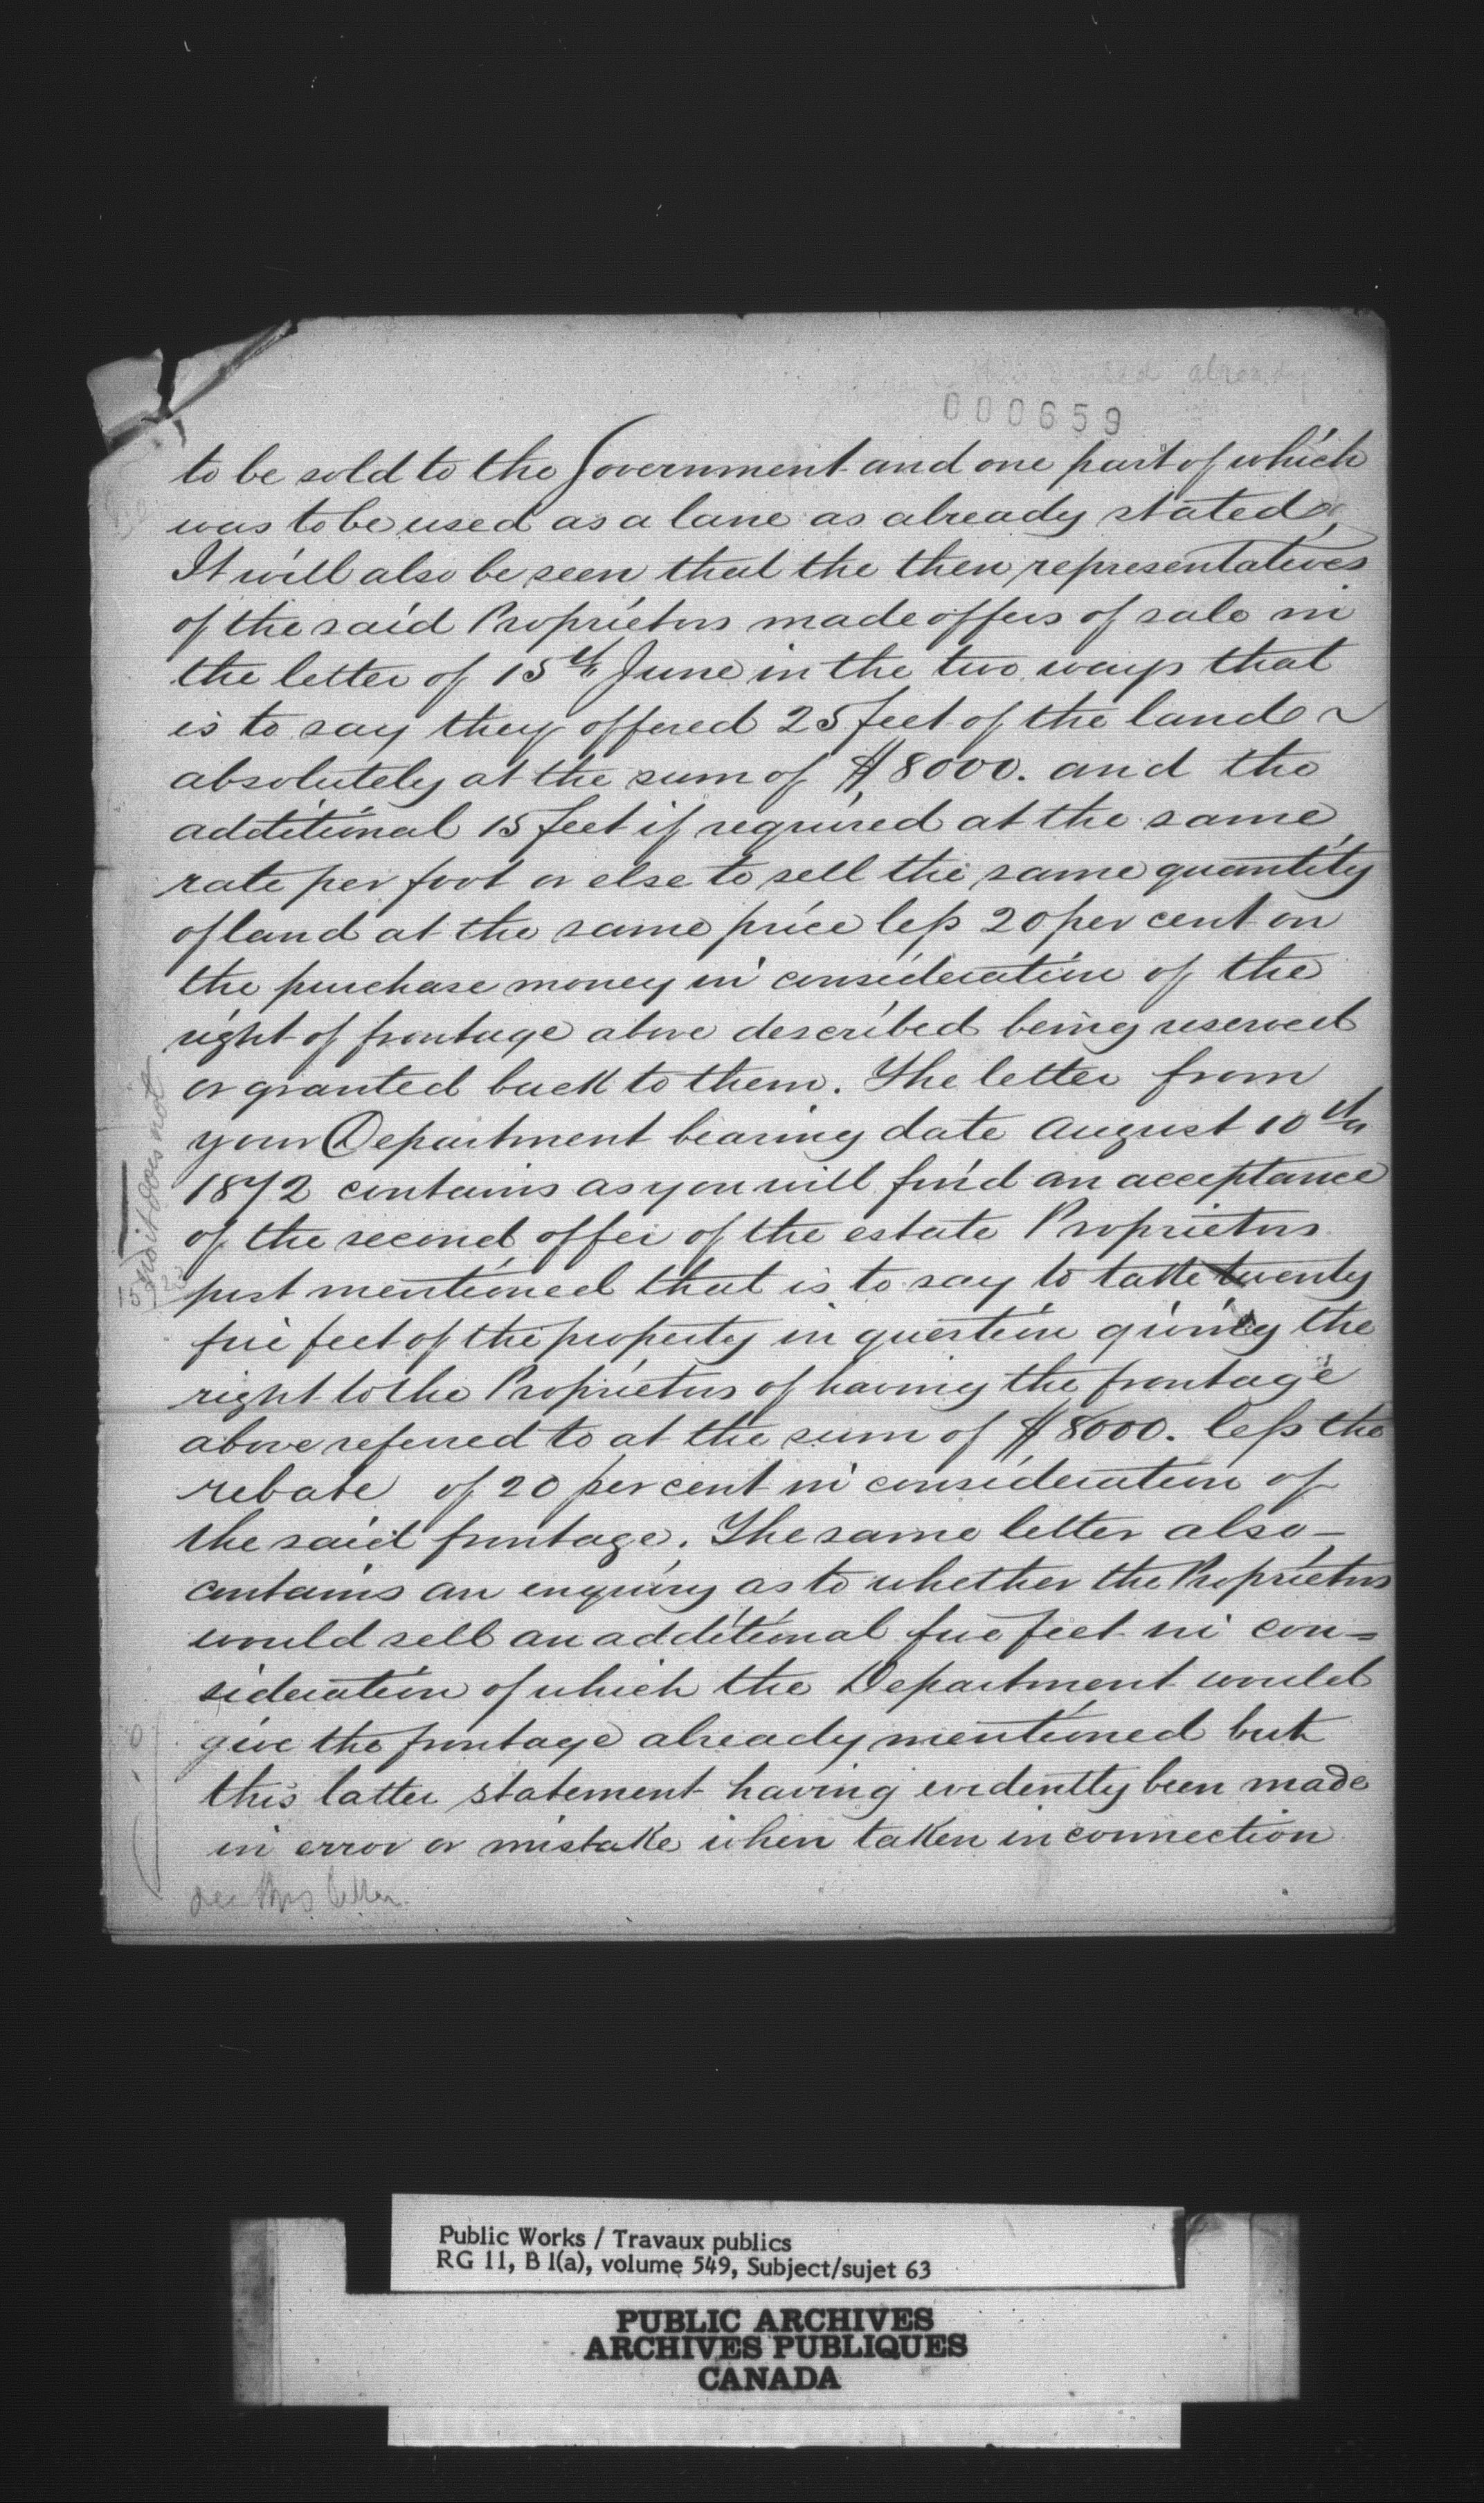 already
000659
to be sold to the Government and one part of which
was to be used as a lane as already stated
It will also be seen that the then representatives
of the said Proprietors made offers of sale in
the letter of 15th June in the two ways that
is to say they offered 25 feet of the land
absolutely at the sum of $8000. and the
additional 15 feet if required at the same
rate per foot or else to sell the same quantity
of land at the same price less 20 per cent on
the purchase money in consideration of the
right of frontage above described being reserved
or granted back to them. The letter from
your Department bearing date August 10th
1872 contains as you will find an acceptance
of the second offer of the estate Proprietors
just mentioned that is to say to take twenty
five feet of the property in question giving the
right to the Proprietors of having the frontage
above referred to at the sum of $8000. less the
rebate of 20 per cent in consideration of
the said frontage. The same letter also –
contains an enquiry as to whether the Proprietors
would sell an additional five feet in con=
sideration of which the Department would
give the frontage already mentioned but
this latter statement having evidently been made
in error or mistake when taken in connection
no it does not
see this letter.
Public Works / Travaux publics
RG 11, B 1(a), volume 549, Subject/sujet 63
PUBLIC ARCHIVES
ARCHIVES PUBLIQUES
CANADA